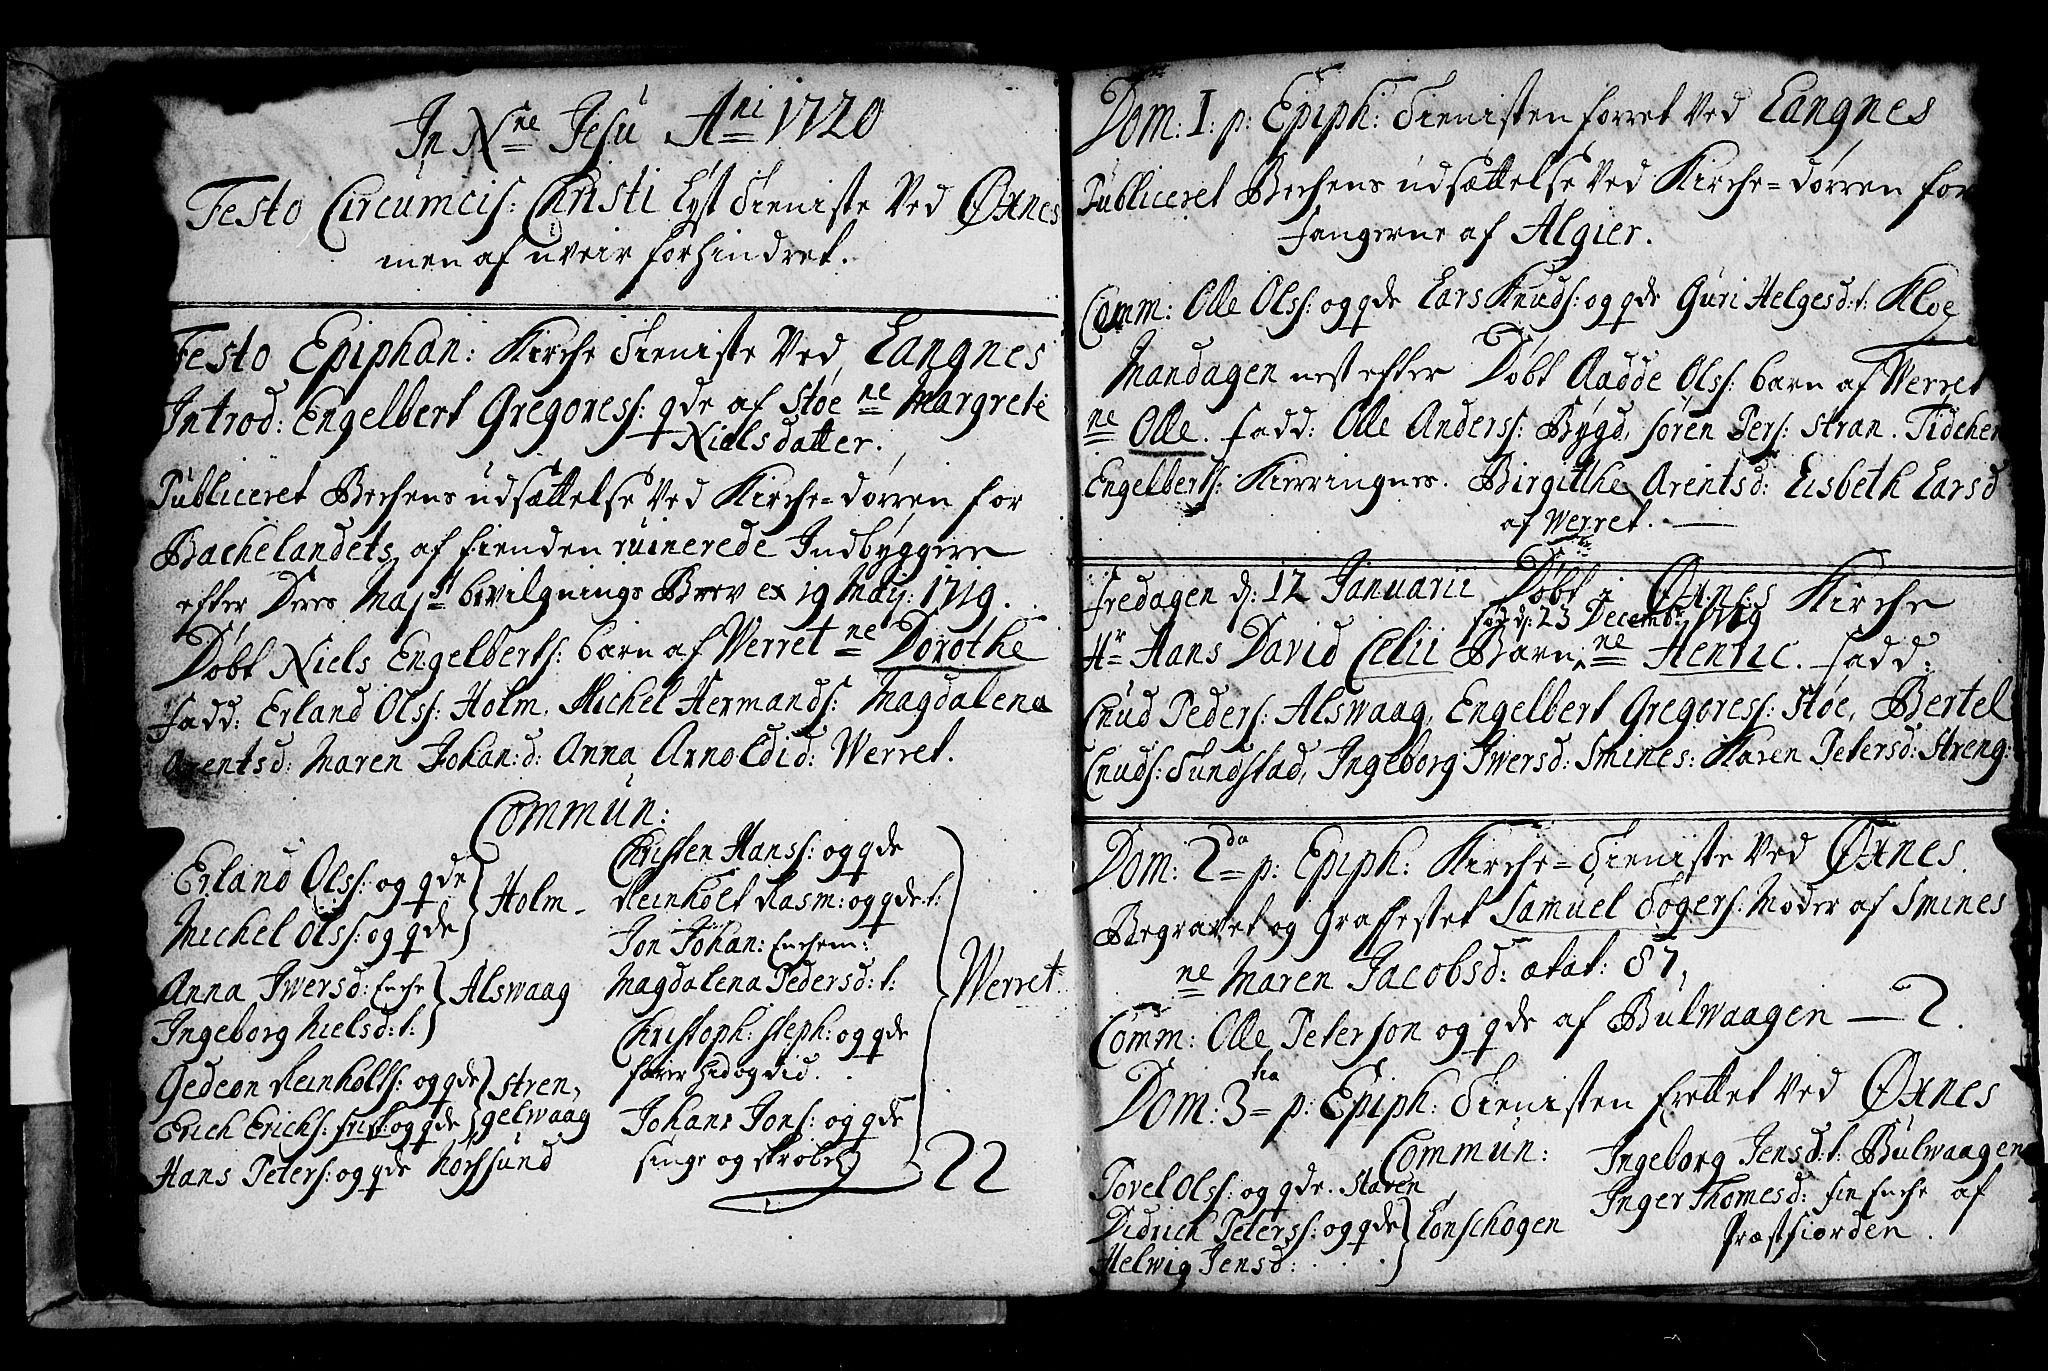 In Nne Jesu Ani 1720
Festo Circumcis: Christi lyst tieniste Ved Øxnes
men af uveir forhindret.
Festo Epiphan: Kirche tieniste Ved Langnes
Introd: Engelbert Gregoress: qde af Støe ne Margrete
Nielsdatter.
Publiceret Bechens udsættelse Ved Kirche=dørren for
Bachelandets af fienden ruinerede Indbyggere
efter Deres Majst bevilgnings Brev ex 19 Maij: 1719.
Døbt Niels Engelberts: barn af Werret ne Dorothe
fadd: Erland Olss: Holm, Michel Hermands: Magdalena
Arentsd: Maren Johan:d: Anna Arnoldid: Werret.
Commun:
Erland Olss: og qde
Michel Olss: og qde } Holm
Anna Iwersd: Enche
Ingeborg Nielsd: t: } Alswaag
Gedeon Reinholts: og qde
Erich Erichs: og qde } Stren,
gelwaag
Hans Peters: og qde Norssund
Christen Hanss: og qde
Reinholt Rasm: og qde t:
Jon Johan: Enchem:
Magdalena Pedersd: t:
Christoph: Steph: og qde
farer hid og did.
Johans Jons: og qde
singe og skrobelig
} Werret
22
Dom: I: p: Epiph: tienisten forret Ved Langnes
Publiceret Bechens udsættelse Ved Kirche=dørren for
fangerne af Algier.
Comm: Olle Olss: og qde Lars Knuds: og qde Guri Helgesd: t: Kloe
Mandagen nest efter Døbt Aadde Olss: barn af Werret
ne Olle. fadd: Olle Anderss: Bygd, Søren Pers: Stran. Tidcher
Engelberts: Kierringnes. Birgitthe Arentsd: Lisbeth Larsd
af Werret.
Fredagen d: 12 Januarii Døbt i Øxnes Kirche
fød d: 23 Decembr: 1719
Hr Hans David Celii Barn ne Henric. fadd:
Cnud Peders: Alswaag, Engelbert Gregoress: Støe, Bertel
Cnuds: Sundstad, Ingeborg Iwersd: Smines: Karen Petersd: Streng:
Dom: 2da p: Epiph: Kirche=tieniste Ved Øxnes.
Begravet og Grafestet Samuel Togers: Moder af Smines
ne Maren Jacobsd: ætat: 87,
Comm: Olle Peterson og qde af Bulwaagen — 2.
Dom: 3tia p: Epiph: tienisten frettet Ved Øxnes
Commun:
Povel Olss: og qde. Staven
Didrich Peterss: og qde
Helwig Jensd: } Lonschogen
Ingeborg Jensd: t: Bulwaagen
Inger Thomesd: fin Enche af
Præstfiorden.